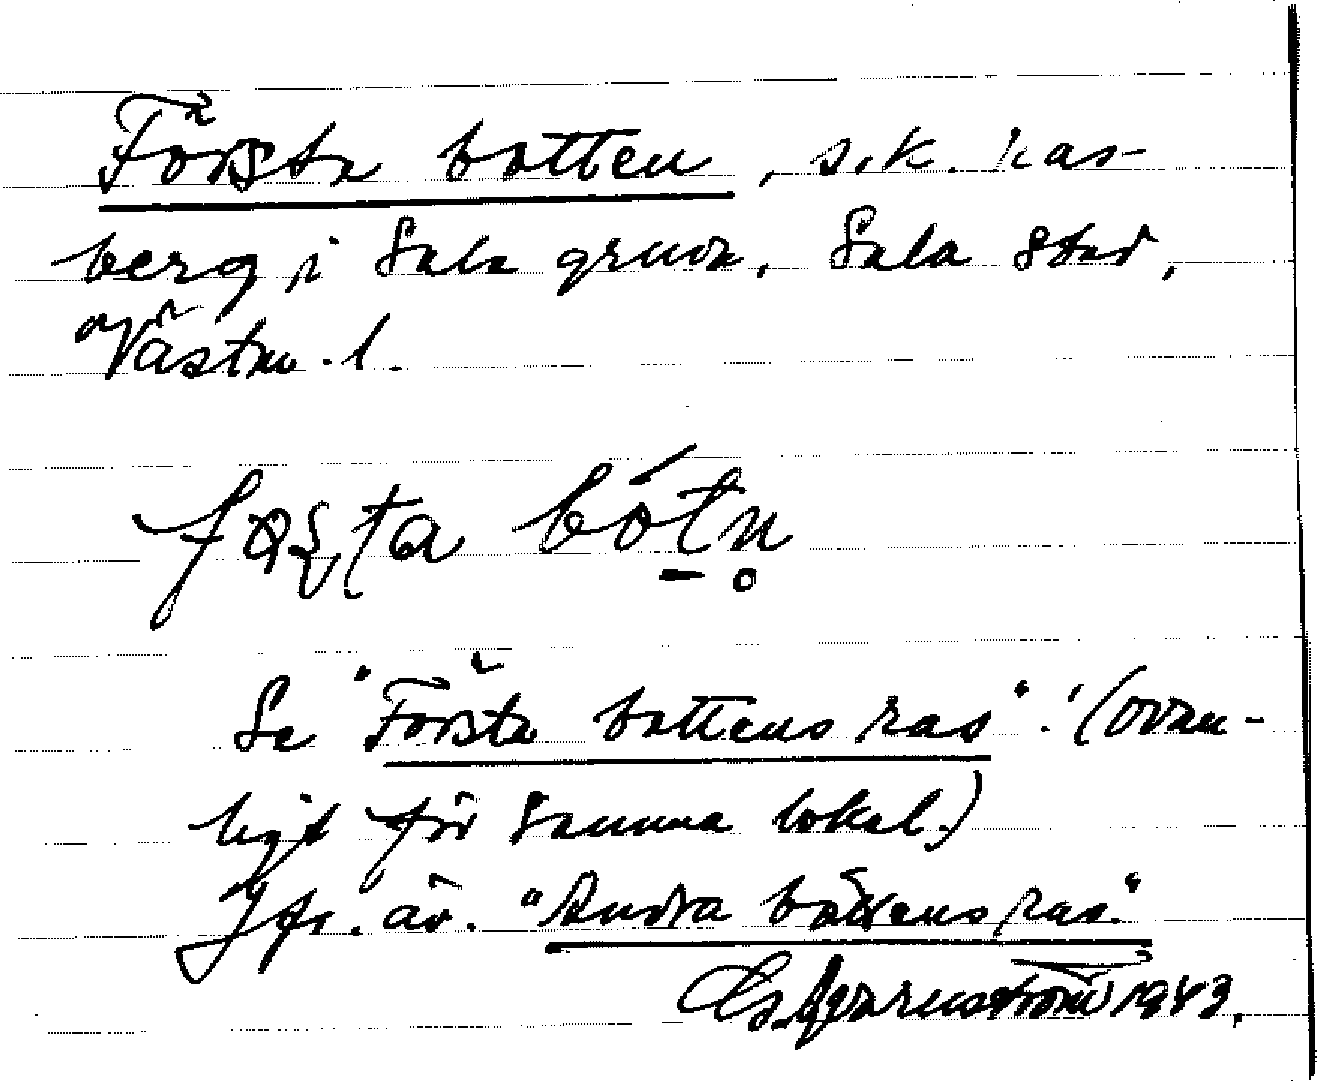 Första botten, s.k. kas-
berg i Sala gruva, Sala stad,
Västm. l.
Se "Första bottens ras"! (ovan-
ligt för samma lokal.)
Jfr. äv. "Andra bottens ras"
1943.